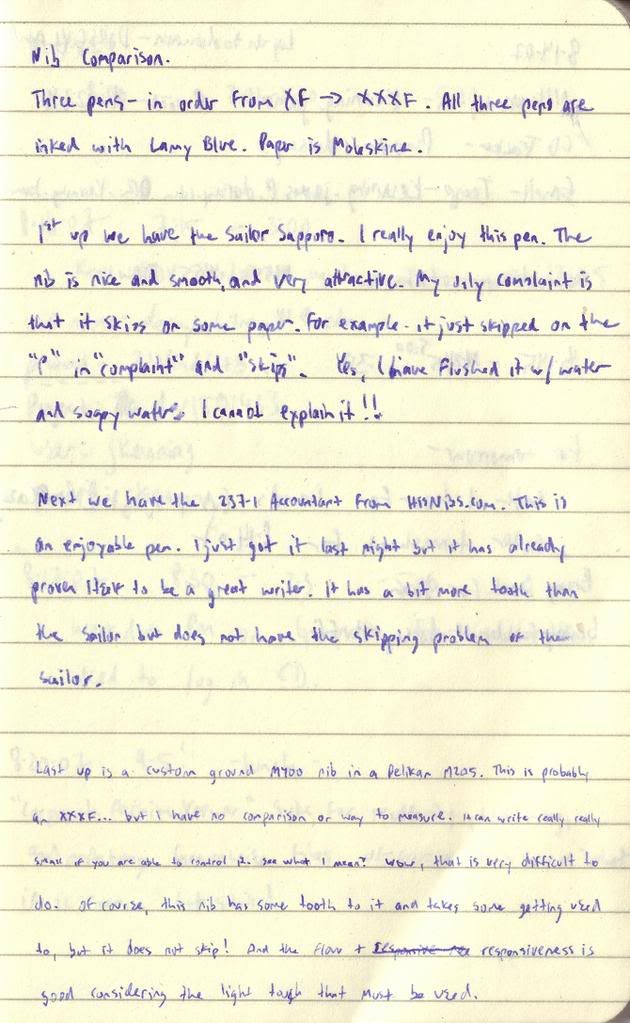 Nib Comparison.
Three pens - in order from XF → XXXF. All three pens are
inked with Lamy Blue. Paper is Moleskine.
1st up we have the Sailor Sapporo. I really enjoy this pen. The
nib is nice and smooth, and very attractive. My only complaint is
that it skips on some paper. For example - it just skipped on the
"P" in "complaint" and "skips". Yes, I have flushed it w/ water
and soapy water. I cannot explain it!!
Next we have the 237-1 Accountant from HisNibs.com. This is
an enjoyable pen. I just got it last night but it has already
proven itself to be a great writer. It has a bit more tooth than
the sailor but does not have the skipping problem of the
sailor.
Last up is a custom ground M400 nib in a Pelikan M205. This is probably
an XXXF... but I have no comparison or way to measure. It can write really really
small if you are able to control it. See what I mean? Wow, that is very difficult to
do. Of course, this nib has some tooth to it and takes some getting used
to, but it does not skip! And the flow + responsiveness is
good considering the light tough that must be used.